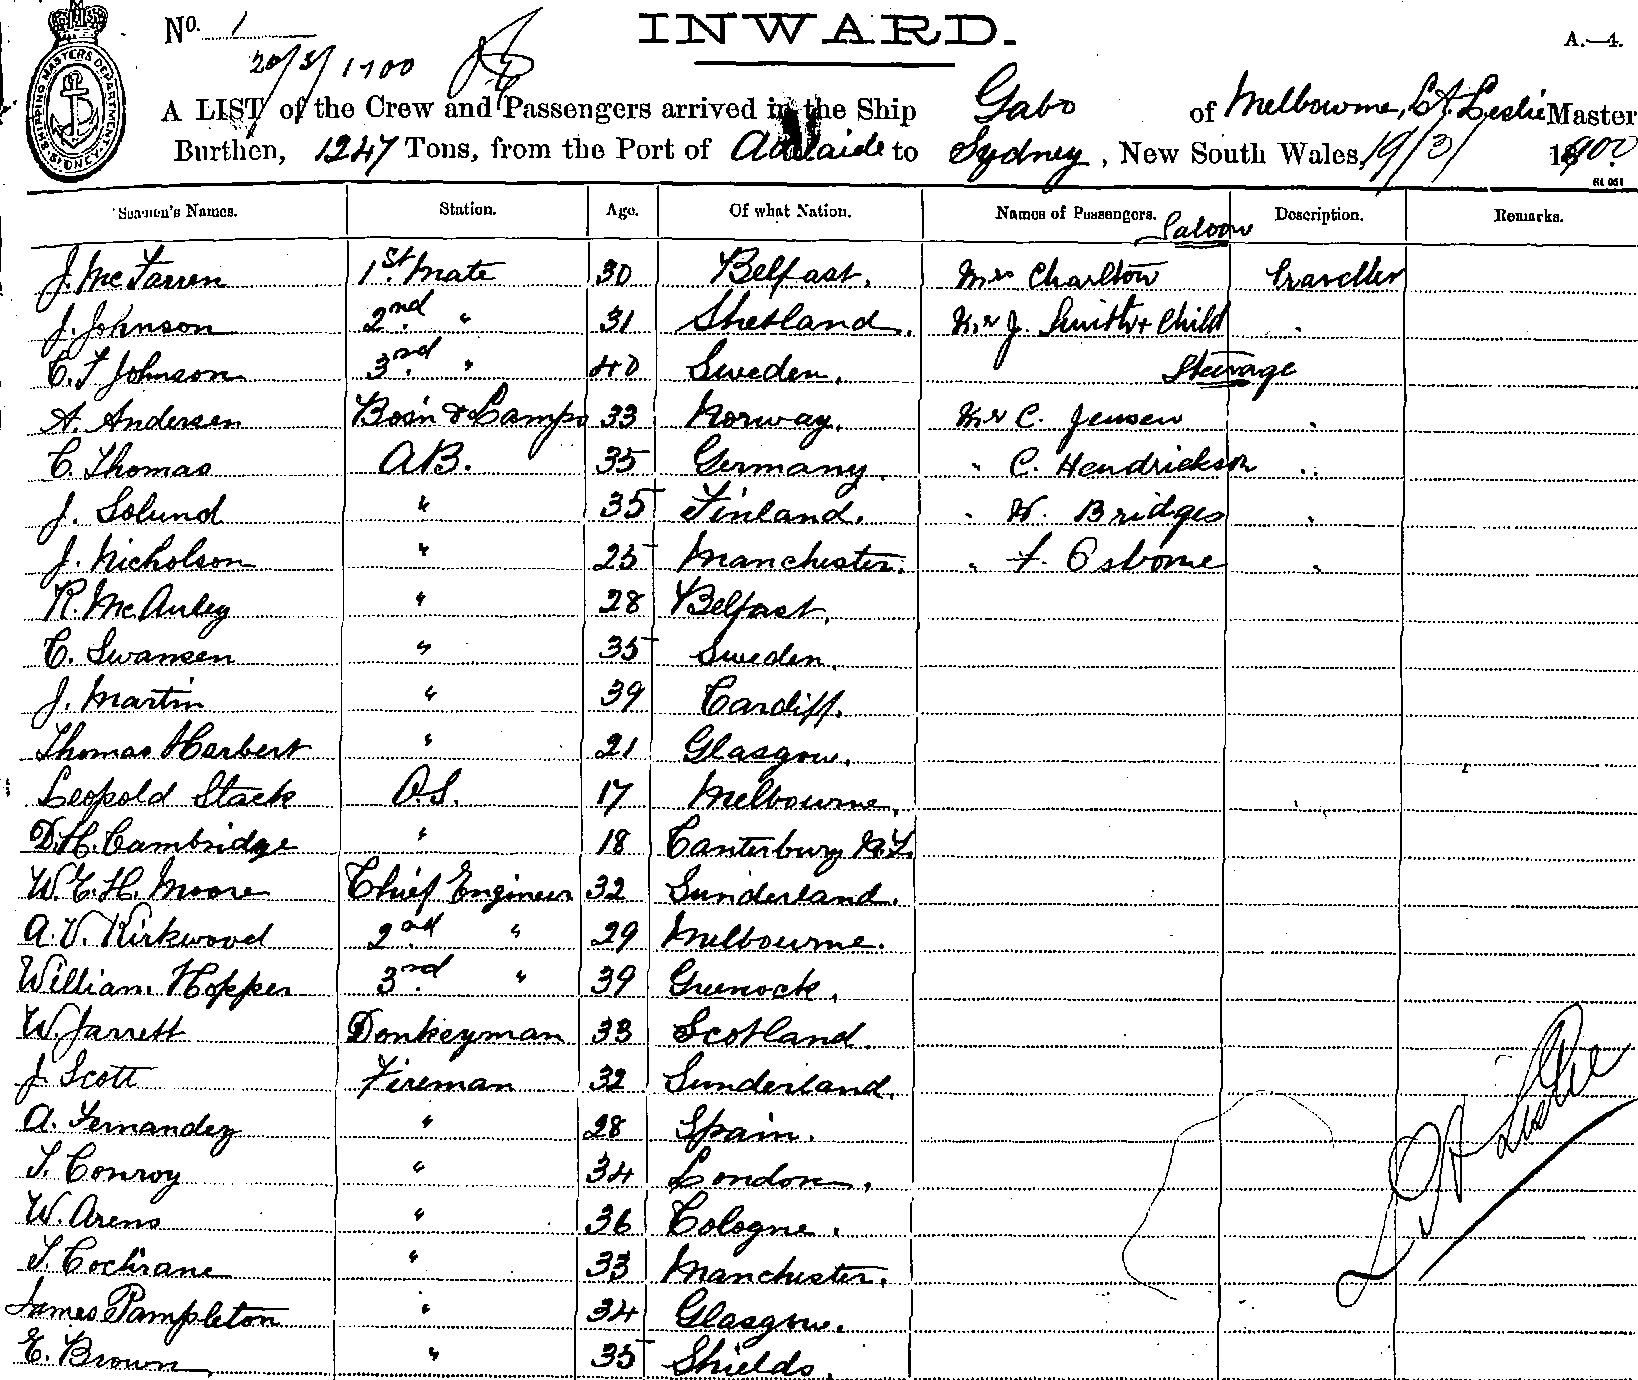 No. 1
INWARD.
A.—4.
20/3/1900
A LIST of the Crew and Passengers arrived in the Ship Gabo of Melbourne, Leslie Master
Burthen, 1247 Tons, from the Port of Adelaide to Sydney, New South Wales, 19/3/ 1900
SHIPPING MASTERS DEPARTMENT SYDNEY
Seamen's Names. Station. Age. Of what Nation. Names of Passengers. Description. Remarks.
Saloon
J. McFarren 1st Mate 30 Belfast. Mrs Charlton Traveller
J. Johnson 2nd " 31 Shetland. J. Smith + Child "
C. F Johnson 3rd " 40 Sweden. Steerage
A. Andersen Bosn & Lamps 33 Norway. Mr C. Jensen "
C. Thomas A.B. 35 Germany. " C. Hendrickson "
J. Solund " 35 Finland. " H. Bridges "
J. Nicholson " 25 Manchester. " F. Osborne "
R. McAuley " 28 Belfast.
C. Swansen " 35 Sweden.
J. Martin " 39 Cardiff.
Thomas Herbert " 21 Glasgow.
Leopold Stack O.S. 17 Melbourne.
D. H. Cambridge " 18 Canterbury N.Z.
W. E. H. Moore Chief Engineer 32 Sunderland.
A. V. Kirkwood 2nd " 29 Melbourne.
William Hopper 3rd " 39 Greenock.
W. Jarrett Donkeyman 33 Scotland.
J. Scott Fireman 32 Sunderland.
A. Fernandez " 28 Spain.
T. Conroy " 34 London.
W. Arens " 36 Cologne.
T. Cochrane " 33 Manchester.
James Pampleton " 34 Glasgow.
E. Brown " 35 Shields.
Leslie